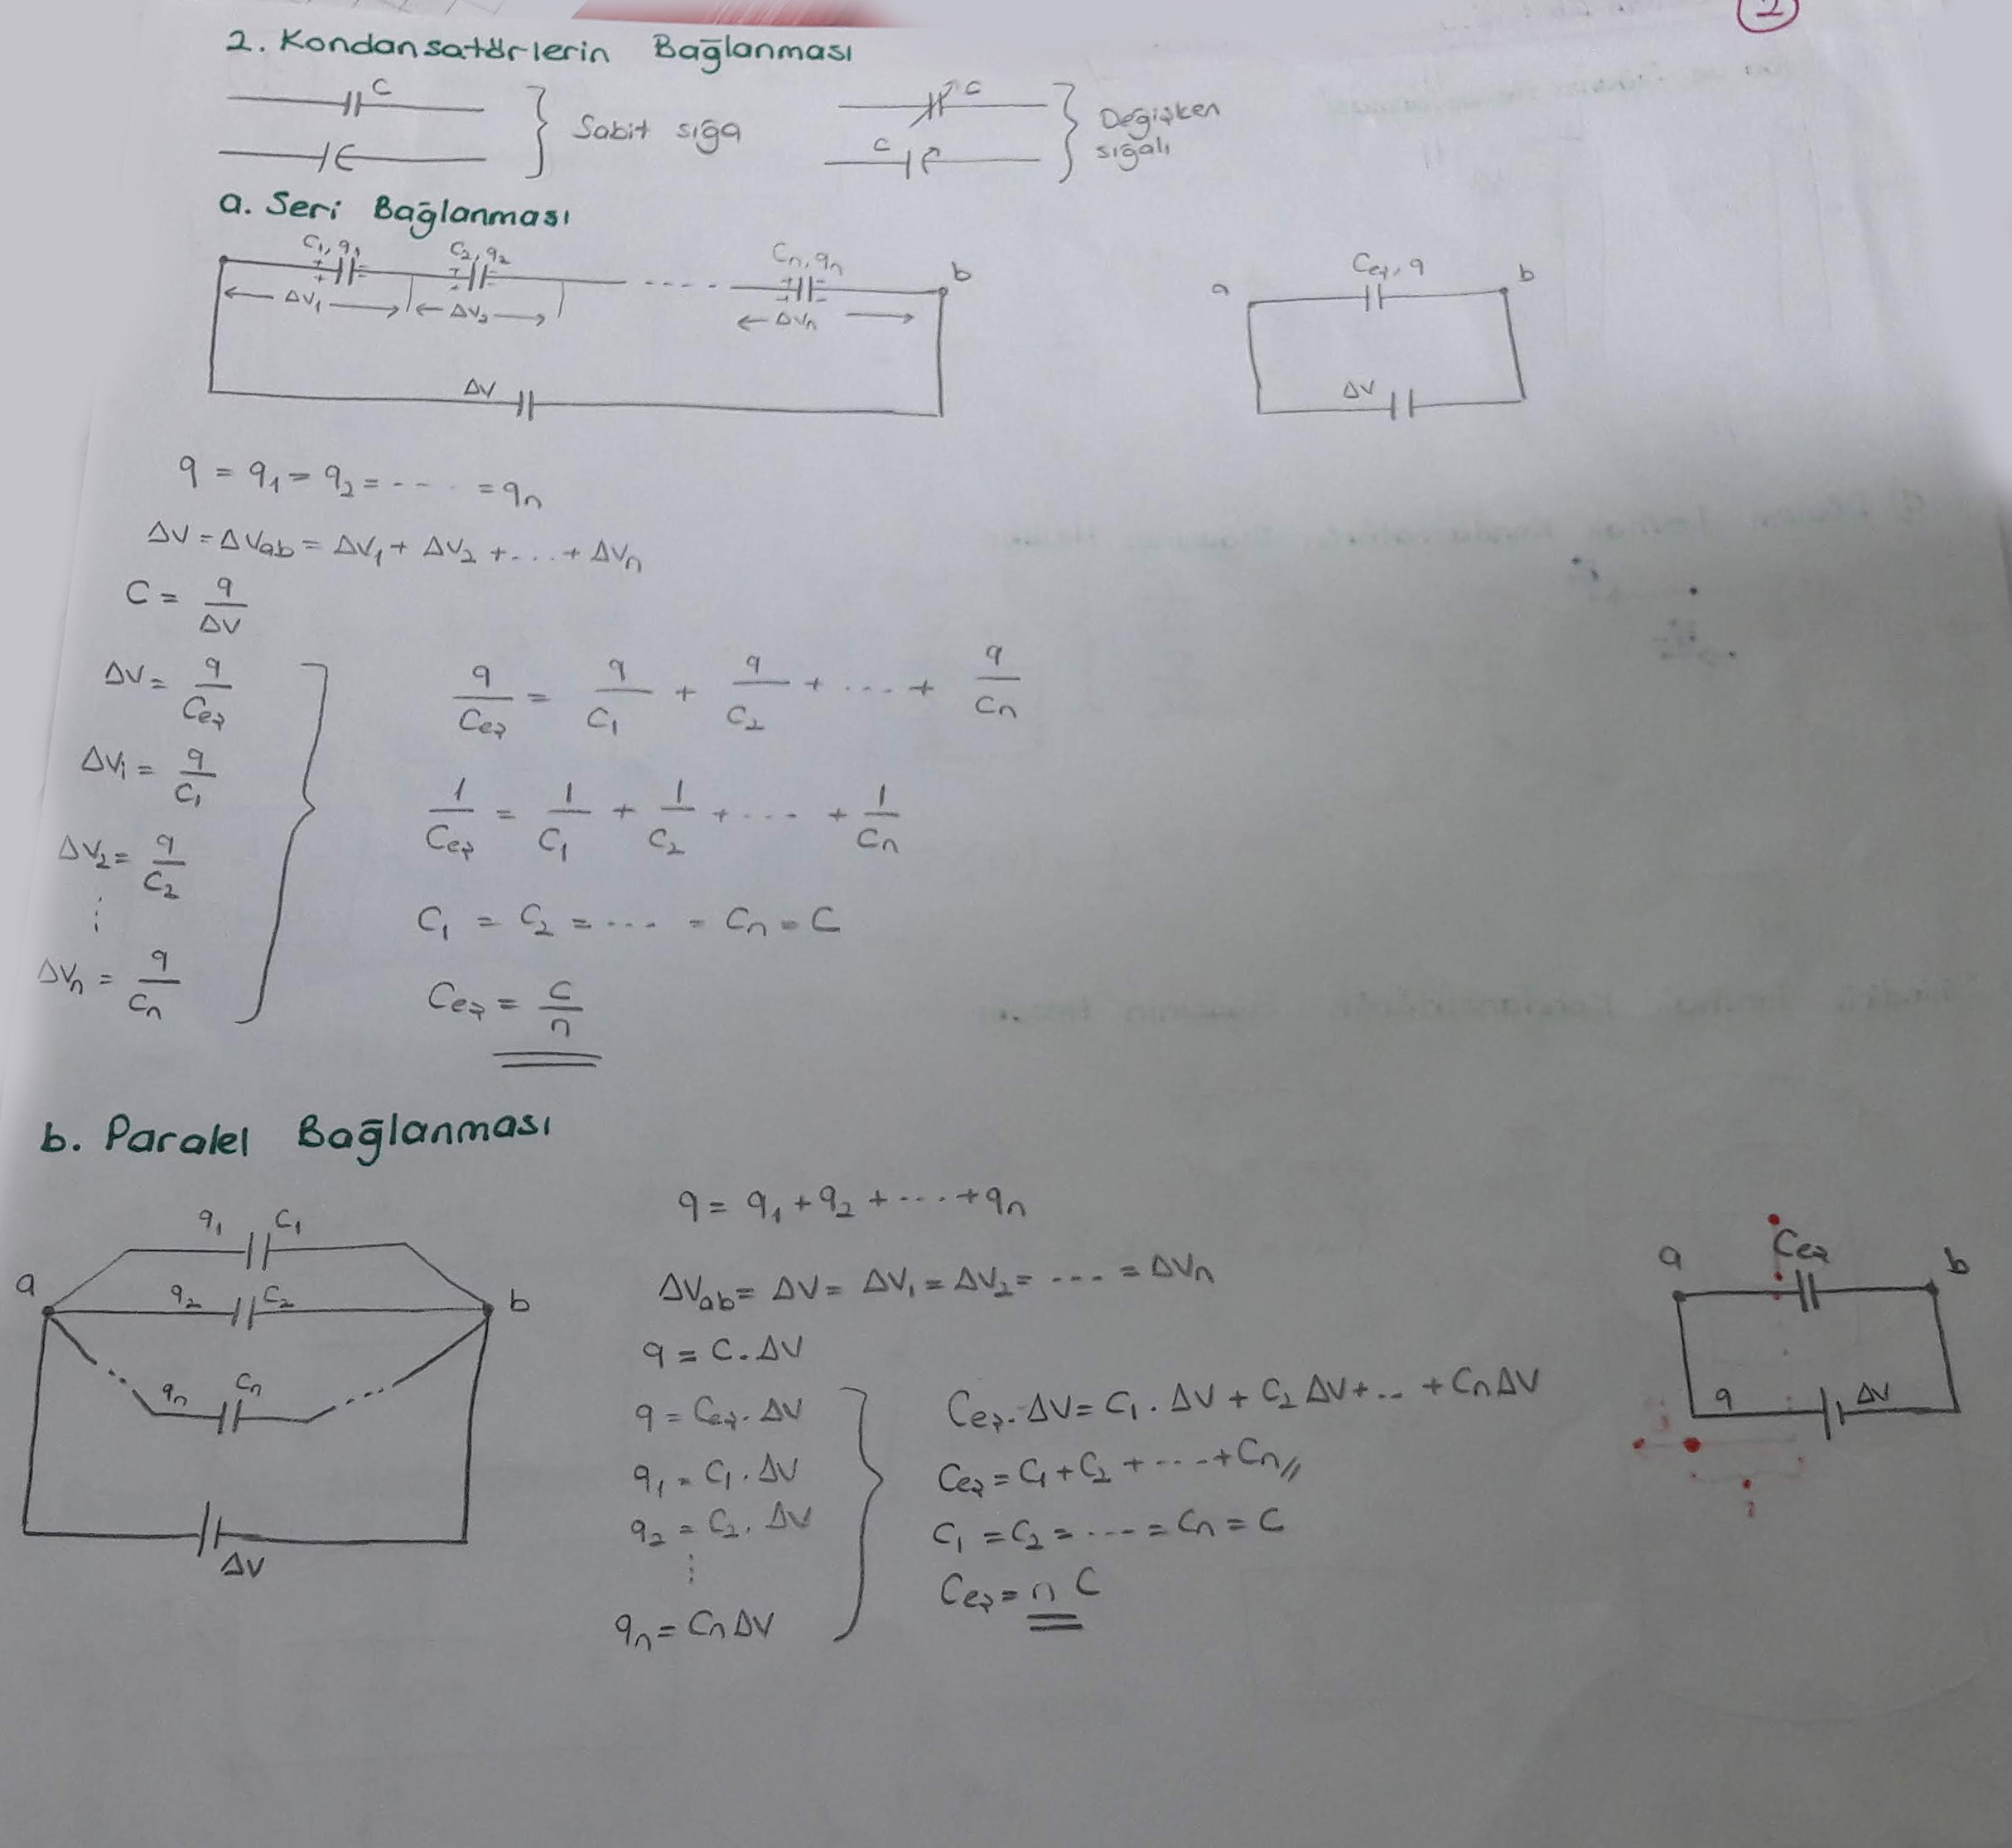 2
2. Kondansatörlerin Bağlanması
C
Sabit sığa
C
C
Değişken sığalı
a. Seri Bağlanması
C₁, q₁ C₂, q₂ Cn, qn b
ΔV₁ ΔV₂ ΔVn
ΔV
a Ceş, q b
ΔV
q = q₁ = q₂ = ---- = qn
ΔV = ΔVab = ΔV₁ + ΔV₂ + ... + ΔVn
C = q/ΔV
ΔV = q/Ceş
ΔV₁ = q/C₁
ΔV₂ = q/C₂
⋮
ΔVn = q/Cn
q/Ceş = q/C₁ + q/C₂ + ... + q/Cn
1/Ceş = 1/C₁ + 1/C₂ + ---- + 1/Cn
C₁ = C₂ = .... = Cn = C
Ceş = C/n
b. Paralel Bağlanması
q₁ C₁
a q₂ C₂ b
qn Cn
ΔV
q = q₁ + q₂ + ---- + qn
ΔVab = ΔV = ΔV₁ = ΔV₂ = ---- = ΔVn
q = C . ΔV
q = Ceş . ΔV
q₁ = C₁ . ΔV
q₂ = C₂ . ΔV
⋮
qn = Cn ΔV
Ceş . ΔV = C₁ . ΔV + C₂ ΔV + .. + Cn ΔV
Ceş = C₁ + C₂ + ---- + Cn //
C₁ = C₂ = ---- = Cn = C
Ceş = n C
a Ceş b
q ΔV